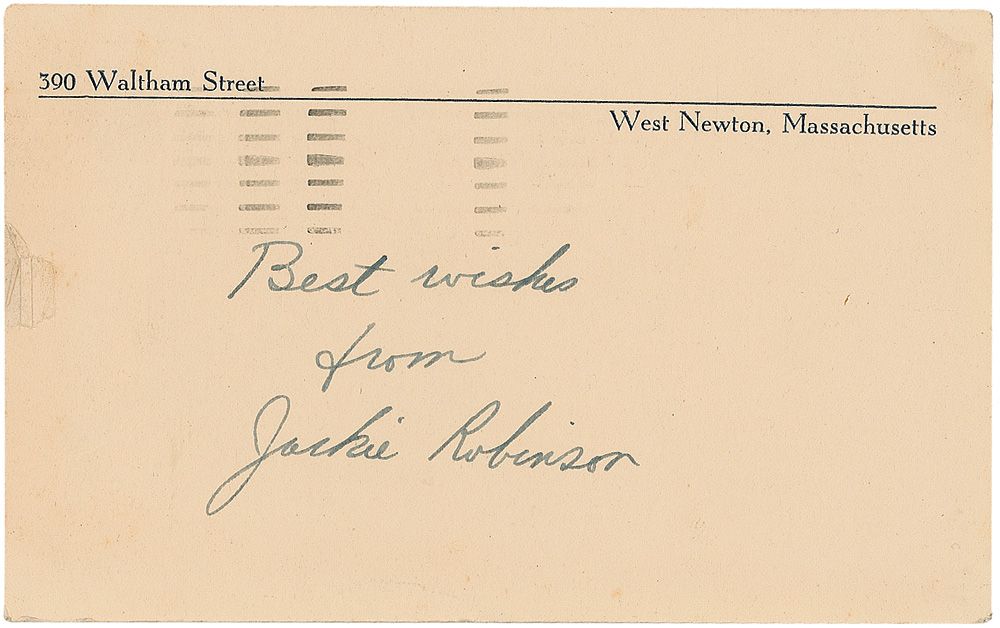 390 Waltham Street
West Newton, Massachusetts
Best wishes
from
Jackie Robinson